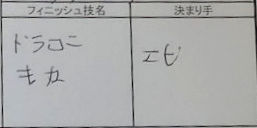 フィニッシュ技名 決まり手
ドラコニ エビ
キカ